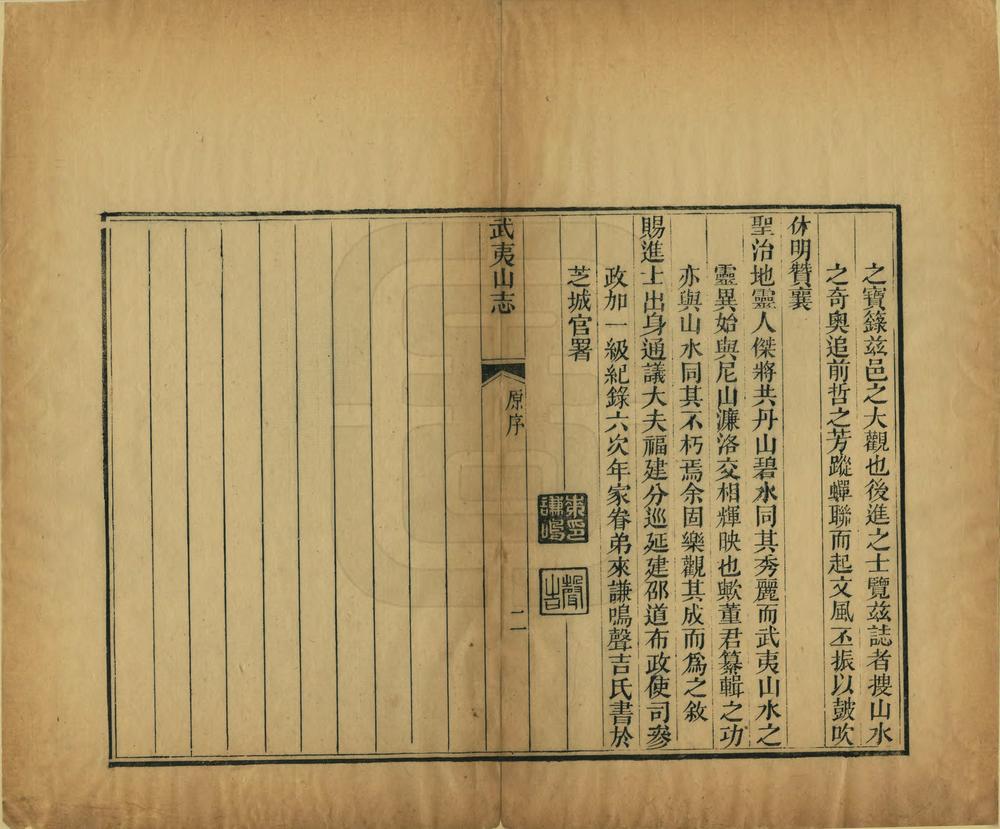 之寶籙兹邑之大觀也後進之士覽兹誌者搜山水
之奇奧追前哲之芳蹤蟬聯而起文風丕振以皷吹
休明贊襄
聖治地靈人傑將共丹山碧水同其秀麗而武夷山水之
靈異始與尼山濂洛交相輝映也歟董君纂輯之功
亦與山水同其不朽焉余固樂觀其成而爲之敘
賜進士出身通議大夫福建分巡延建邵道布政使司參
政加一級紀錄六次年家眷弟來謙鳴聲吉氏書於
芝城官署
來謙鳴印
聲吉
武夷山志
原序
二